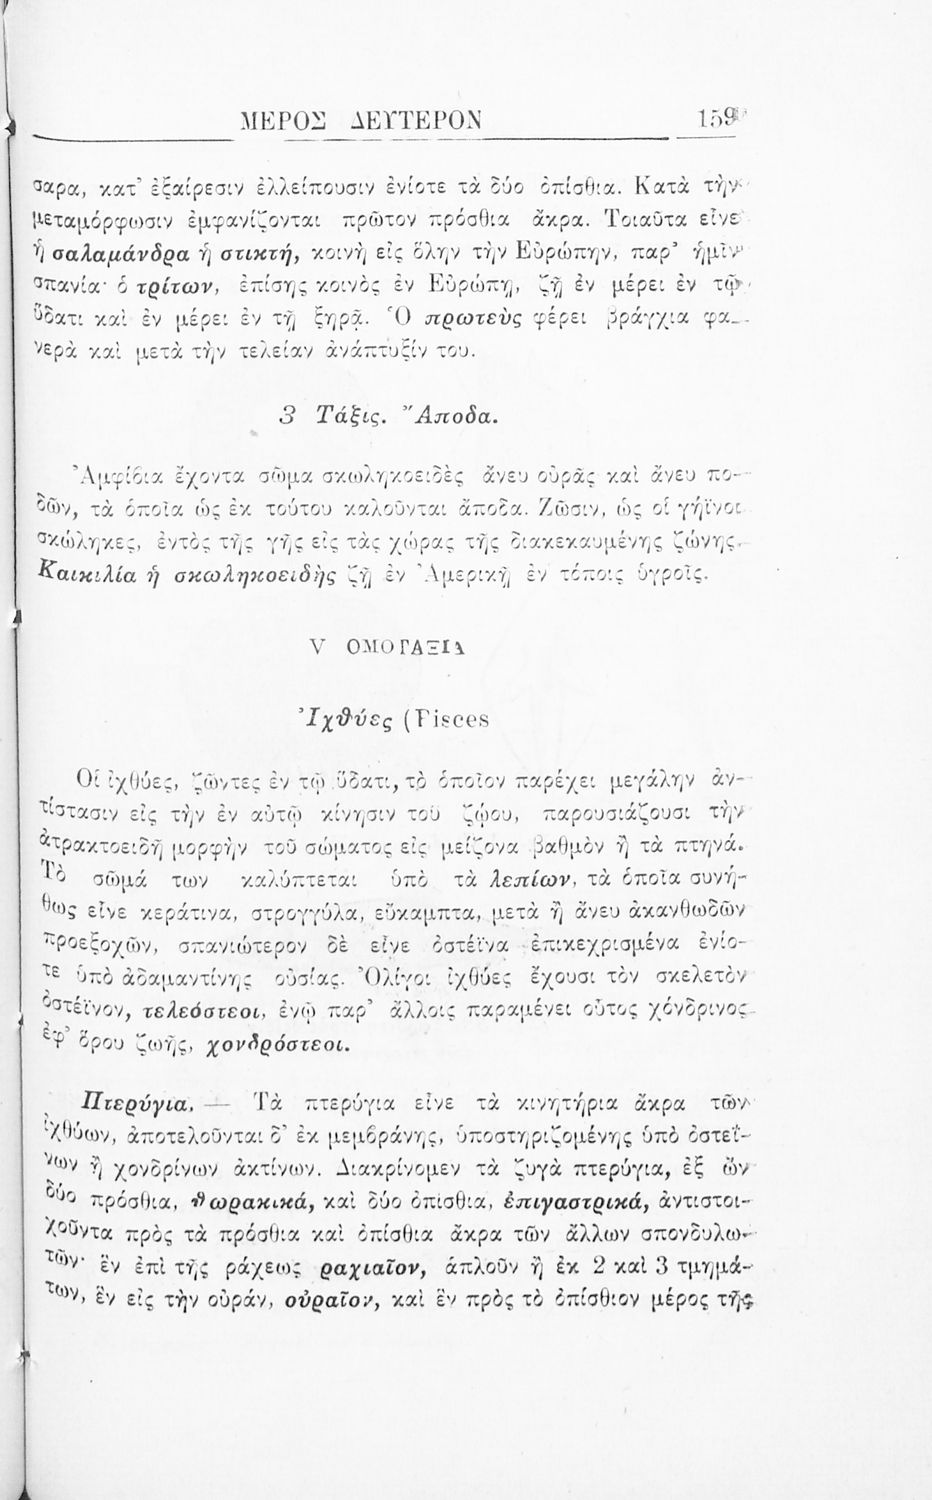 ΜΕΡΟΣ ΔΕΥΤΕΡΟΝ 159
σαρα, κατ’ ἐξαίρεσιν ἐλλείπουσιν ἐνίοτε τὰ δύο ὀπίσθια. Κατὰ τὴν
μεταμόρφωσιν ἐμφανίζονται πρῶτον πρόσθια ἄκρα. Τοιαῦτα εἶνε
ἡ σαλαμάνδρα ἡ στικτή, κοινὴ εἰς ὅλην τὴν Εὐρώπην, παρ’ ἡμῖν
σπανία· ὁ τρίτων, ἐπίσης κοινὸς ἐν Εὐρώπῃ, ζῇ ἐν μέρει ἐν τῷ
ὕδατι καὶ ἐν μέρει ἐν τῇ ξηρᾷ. Ὁ πρωτεὺς φέρει βράγχια φα-
νερὰ καὶ μετὰ τὴν τελείαν ἀνάπτυξίν του.
3 Τάξις. Ἄποδα.
Ἀμφίβια ἔχοντα σῶμα σκωληκοειδὲς ἄνευ οὐρᾶς καὶ ἄνευ πο-
δῶν, τὰ ὁποῖα ὡς ἐκ τούτου καλοῦνται ἄποδα. Ζῶσιν, ὡς οἱ γήϊνοι
σκώληκες, ἐντὸς τῆς γῆς εἰς τὰς χώρας τῆς διακεκαυμένης ζώνης.
Καικιλία ἡ σκωληκοειδὴς ζῇ ἐν Ἀμερικῇ ἐν τόποις ὑγροῖς.
V ΟΜΟΓΑΞΙΑ
Ἰχθύες (Pisces
Οἱ ἰχθύες, ζῶντες ἐν τῷ ὕδατι, τὸ ὁποῖον παρέχει μεγάλην ἀν-
τίστασιν εἰς τὴν ἐν αὐτῷ κίνησιν τοῦ ζῴου, παρουσιάζουσι τὴν
ἀτρακτοειδῆ μορφὴν τοῦ σώματος εἰς μείζονα βαθμὸν ἢ τὰ πτηνά.
Τὸ σῶμά των καλύπτεται ὑπὸ τὰ λεπίων, τὰ ὁποῖα συνή-
θως εἶνε κεράτινα, στρογγύλα, εὔκαμπτα, μετὰ ἢ ἄνευ ἀκανθωδῶν
προεξοχῶν, σπανιώτερον δὲ εἶνε ὀστέϊνα ἐπικεχρισμένα ἐνίο-
τε ὑπὸ ἀδαμαντίνης οὐσίας. Ὀλίγοι ἰχθύες ἔχουσι τὸν σκελετὸν
ὀστέϊνον, τελεόστεοι, ἐνῷ παρ’ ἄλλοις παραμένει οὗτος χόνδρινος
ἐφ’ ὅρου ζωῆς, χονδρόστεοι.
Πτερύγια. — Τὰ πτερύγια εἶνε τὰ κινητήρια ἄκρα τῶν
ἰχθύων, ἀποτελοῦνται δ’ ἐκ μεμβράνης, ὑποστηριζομένης ὑπὸ ὀστεΐ-
νων ἢ χονδρίνων ἀκτίνων. Διακρίνομεν τὰ ζυγὰ πτερύγια, ἐξ ὧν
δύο πρόσθια, θωρακικά, καὶ δύο ὀπίσθια, ἐπιγαστρικά, ἀντιστοι-
χοῦντα πρὸς τὰ πρόσθια καὶ ὀπίσθια ἄκρα τῶν ἄλλων σπονδυλω-
τῶν· ἓν ἐπὶ τῆς ράχεως ραχιαῖον, ἁπλοῦν ἢ ἐκ 2 καὶ 3 τμημά-
των, ἓν εἰς τὴν οὐράν, οὐραῖον, καὶ ἓν πρὸς τὸ ὀπίσθιον μέρος τῆς